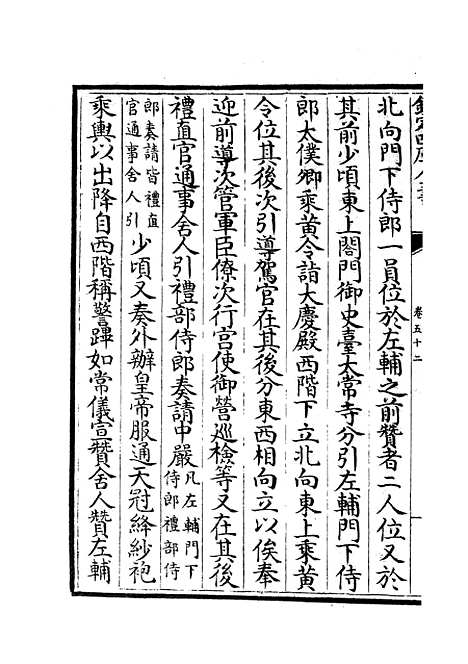 欽定四庫全書
卷五十二
北向門下侍郎一員位於左輔之前贊者二人位又於
其前少頃東上閤門御史臺太常寺分引左輔門下侍
郎太僕卿乘黃令詣大慶殿西階下立北向東上乘黃
令位其後次引導駕官在其後分東西相向立以俟奉
迎前導次管軍臣僚次行宮使御營巡檢等又在其後
禮直官通事舍人引禮部侍郎奏請中嚴凡左輔門下侍郎禮部侍
郎奏請皆禮直官通事舍人引少頃又奏外辦皇帝服通天冠絳紗袍
乘輿以出降自西階稱警蹕如常儀宣贊舍人贊左輔